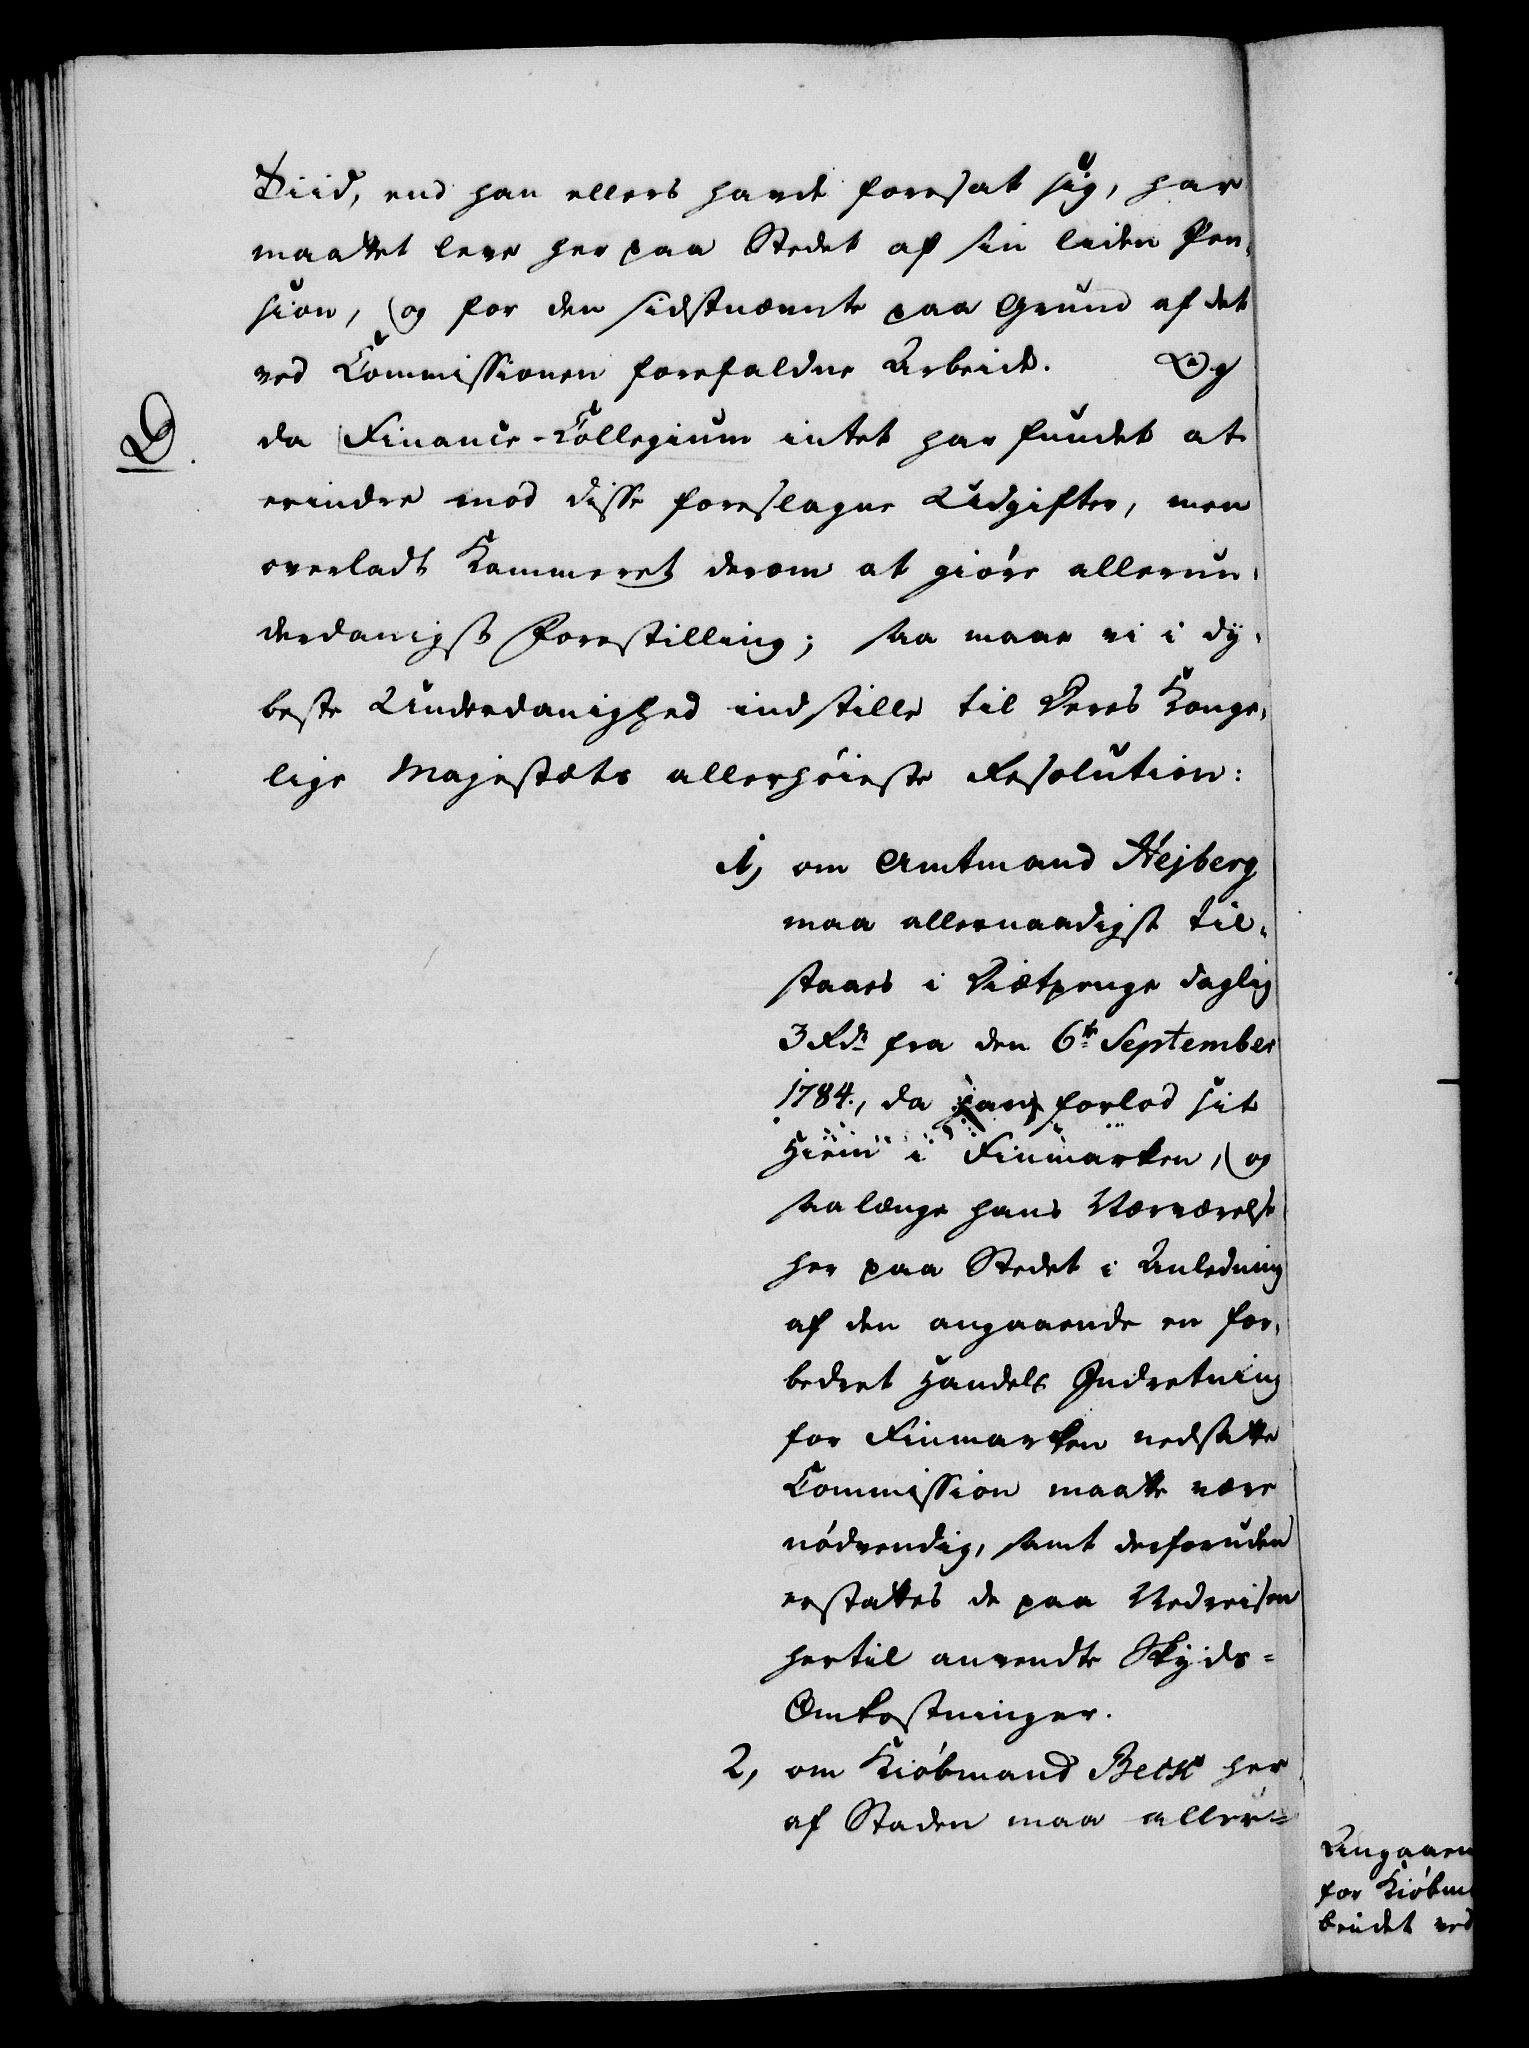 Tiid, end han ellers havde foresat sig, har
maattet leve her paa Stedet af sin liden Pen-
sion, og for den sidstnævnte paa Grund af det
ved Commissionen forefaldne Arbeide. Og
D. da Finance-Collegium intet har fundet at
erindre mod disse foreslagne Udgifter, men
overladt Kammeret derom at giöre allerun-
derdanigst Forestilling; saa maae vi i dy-
beste Underdanighed indstille til Deres Konge-
lige Majestæts allerhöieste Resolution:
1, om Amtmand Hejberg
maa allernaadigst til-
staaes i Diætpenge daglig
3 Rdr fra den 6te September
1784., da han forlod sit
Hiem i Finmarken, og
saa længe hans Nærværelse
her paa Stedet i Anledning
af den angaaende en for-
bedret Handels Indretning
for Finmarken nedsatte
Commission maatte være
nödvendig, samt desforuden
erstattes de paa Nedreisen
hertil anvendte Skyds-
Omkostninger.
2, om Kiöbmand Beck her
af Staden maa aller-
Angaaen
for Kiöbm
beidet ved